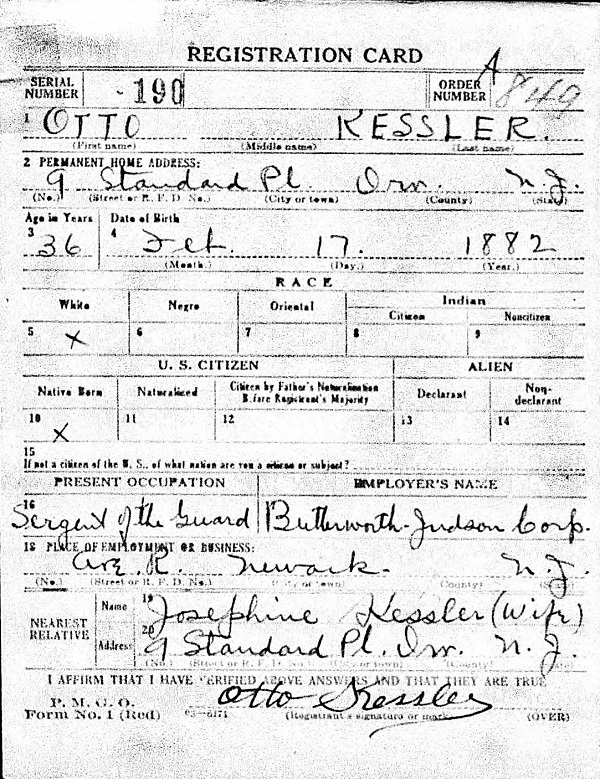 REGISTRATION CARD
SERIAL NUMBER 190 ORDER NUMBER A 849
1 OTTO KESSLER.
(First name) (Middle name) (Last name)
2 PERMANENT HOME ADDRESS:
9 Standard Pl. Irv. N.J.
(No.) (Street or R. F. D. No.) (City or town) (County) (State)
Age in Years Date of Birth
3 36 4 Feb. 17. 1882
(Month.) (Day.) (Year.)
RACE
White Negro Oriental Indian
Citizen Noncitizen
5 X 6 7 8 9
U. S. CITIZEN ALIEN
Native Born Naturalized Citizen by Father's Naturalization Before Registrant's Majority Declarant Non-declarant
10 X 11 12 13 14
15
If not a citizen of the U. S., of what nation are you a citizen or subject?
PRESENT OCCUPATION EMPLOYER'S NAME
16 Sergent of the Guard Butterworth-Judson Corp.
18 PLACE OF EMPLOYMENT OR BUSINESS:
Ave. R. Newark. N.J.
(No.) (Street or R. F. D. No.) (City or town) (County)
NEAREST RELATIVE Name 19 Josephine Kessler (Wife)
Address 20 9 Standard Pl. Irv. N.J.
(No.) (Street or R. F. D. No.) (City or town) (County)
I AFFIRM THAT I HAVE VERIFIED ABOVE ANSWERS AND THAT THEY ARE TRUE
P. M. G. O.
Form No. 1 (Red) 03-6171 Otto Kessler
(Registrant's signature or mark) (OVER)